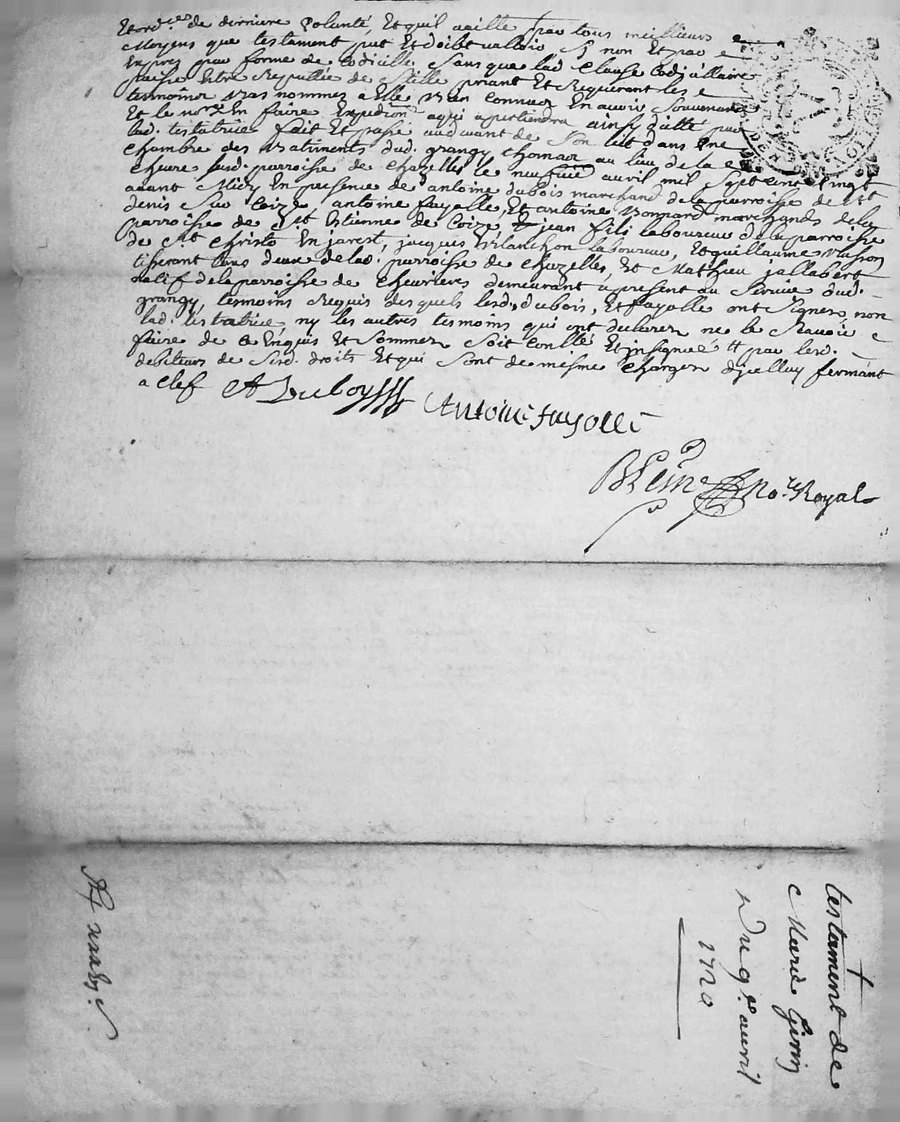 et ord.ces de derniere volunté, Et quil vaille par tous meilleurs
Moyens que testament put Et doibt valloir Sy non Et par
Expres par forme de Codicille Sans que lad Clause Codicillaire
puisse Estre Reputtée de Stille priant Et Requerant les
tesmoins bas nommes a Elle bien Connus En avoir Souvenance
Et le no.re En faire Expedition a qui apartiendra ainsy dicté par
lad. testatrice fait Et passé audevant de Son lit dans Une
Chambre des batiments dud. grangy thomas au lieu de la
Cheure sud. parroisse de Chazelles le neufuie avril mil Sept cent vingt
avant Midy En presence de antoine dubois marchand de la parroisse de St
denis Sur Coize, antoine fayolle, Et antoine bonnard marchands de la
parroisse de St Estienne de Coize, jean fili laboureur de la parroisse
de St Christo En jarest, jacques blanchon laboureur, Et guillaume
tisserant tous deux de lad. parroisse de Chazelles, Et Mathieu jallabert
natif de la parroisse de Cheurieres demeurant a present au Service dud.
grangy, tesmoins Requis desquels lesd. dubois, Et fayolle ont Signes non
lad. testatrice ny les autres tesmoins qui ont declarer ne le Scavoir
faire de ce Enquis Et Sommes Soit conllé Et insignué tt par les d.
debiteurs de Sisd. droits Et qui Sont de mesme Charges dicelluy fermant
a Clef A Duboy
Antoine fayolle
no.re Royal
testament de
Marie Girin
Du 9e avril
1720